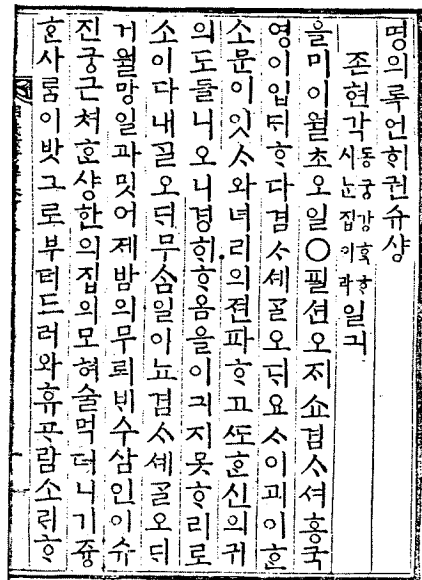 명의록언ᄒᆡ권슈샹
존현각 동궁강학ᄒᆞ시ᄂᆞᆫ집이라 일긔
을미이월초오일○필션오ᄌᆡ쇼겸ᄉᆞ셔홍국
영이입ᄃᆡᄒᆞ다겸ᄉᆞ셰ᄀᆞᆯ오ᄃᆡ요ᄉᆞ이괴이ᄒᆞᆫ
소문이잇ᄉᆞ와녀리의젼파ᄒᆞ고ᄯᅩᄒᆞᆫ신의귀
의도들니오니경ᄒᆡᄒᆞ옴을이긔지못ᄒᆞ리로
소이다내ᄀᆞᆯ오ᄃᆡ무ᄉᆞᆷ일이뇨겸ᄉᆞ셰ᄀᆞᆯ오ᄃᆡ
거월망일과밋어제밤의무뢰ᄇᆡ수삼인이슈
진궁근쳐ᄒᆞᆫ샹한의집의모혀술먹더니기즁
ᄒᆞᆫ사ᄅᆞᆷ이밧그로부터드러와휴ᄑᆞ람소ᄅᆡᄒᆞ